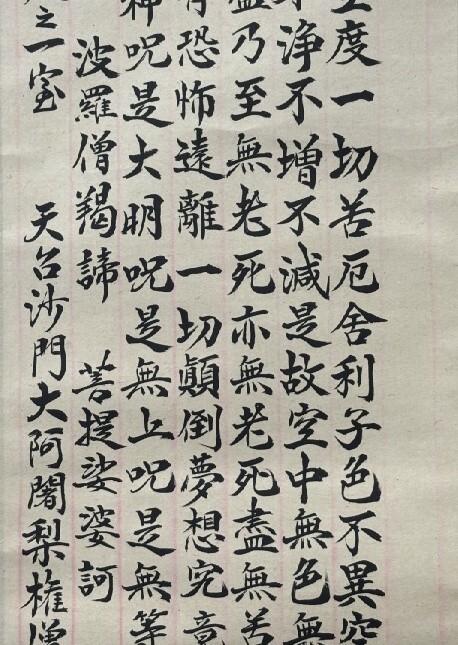 度一切苦厄舍利子色不異空
淨不增不減是故空中無色無
盡乃至無老死亦無老死盡無苦
有恐怖遠離一切顛倒夢想究竟
神呪是大明呪是無上呪是無等
波羅僧羯諦 菩提娑婆訶
之一室 天台沙門大阿闍梨権僧